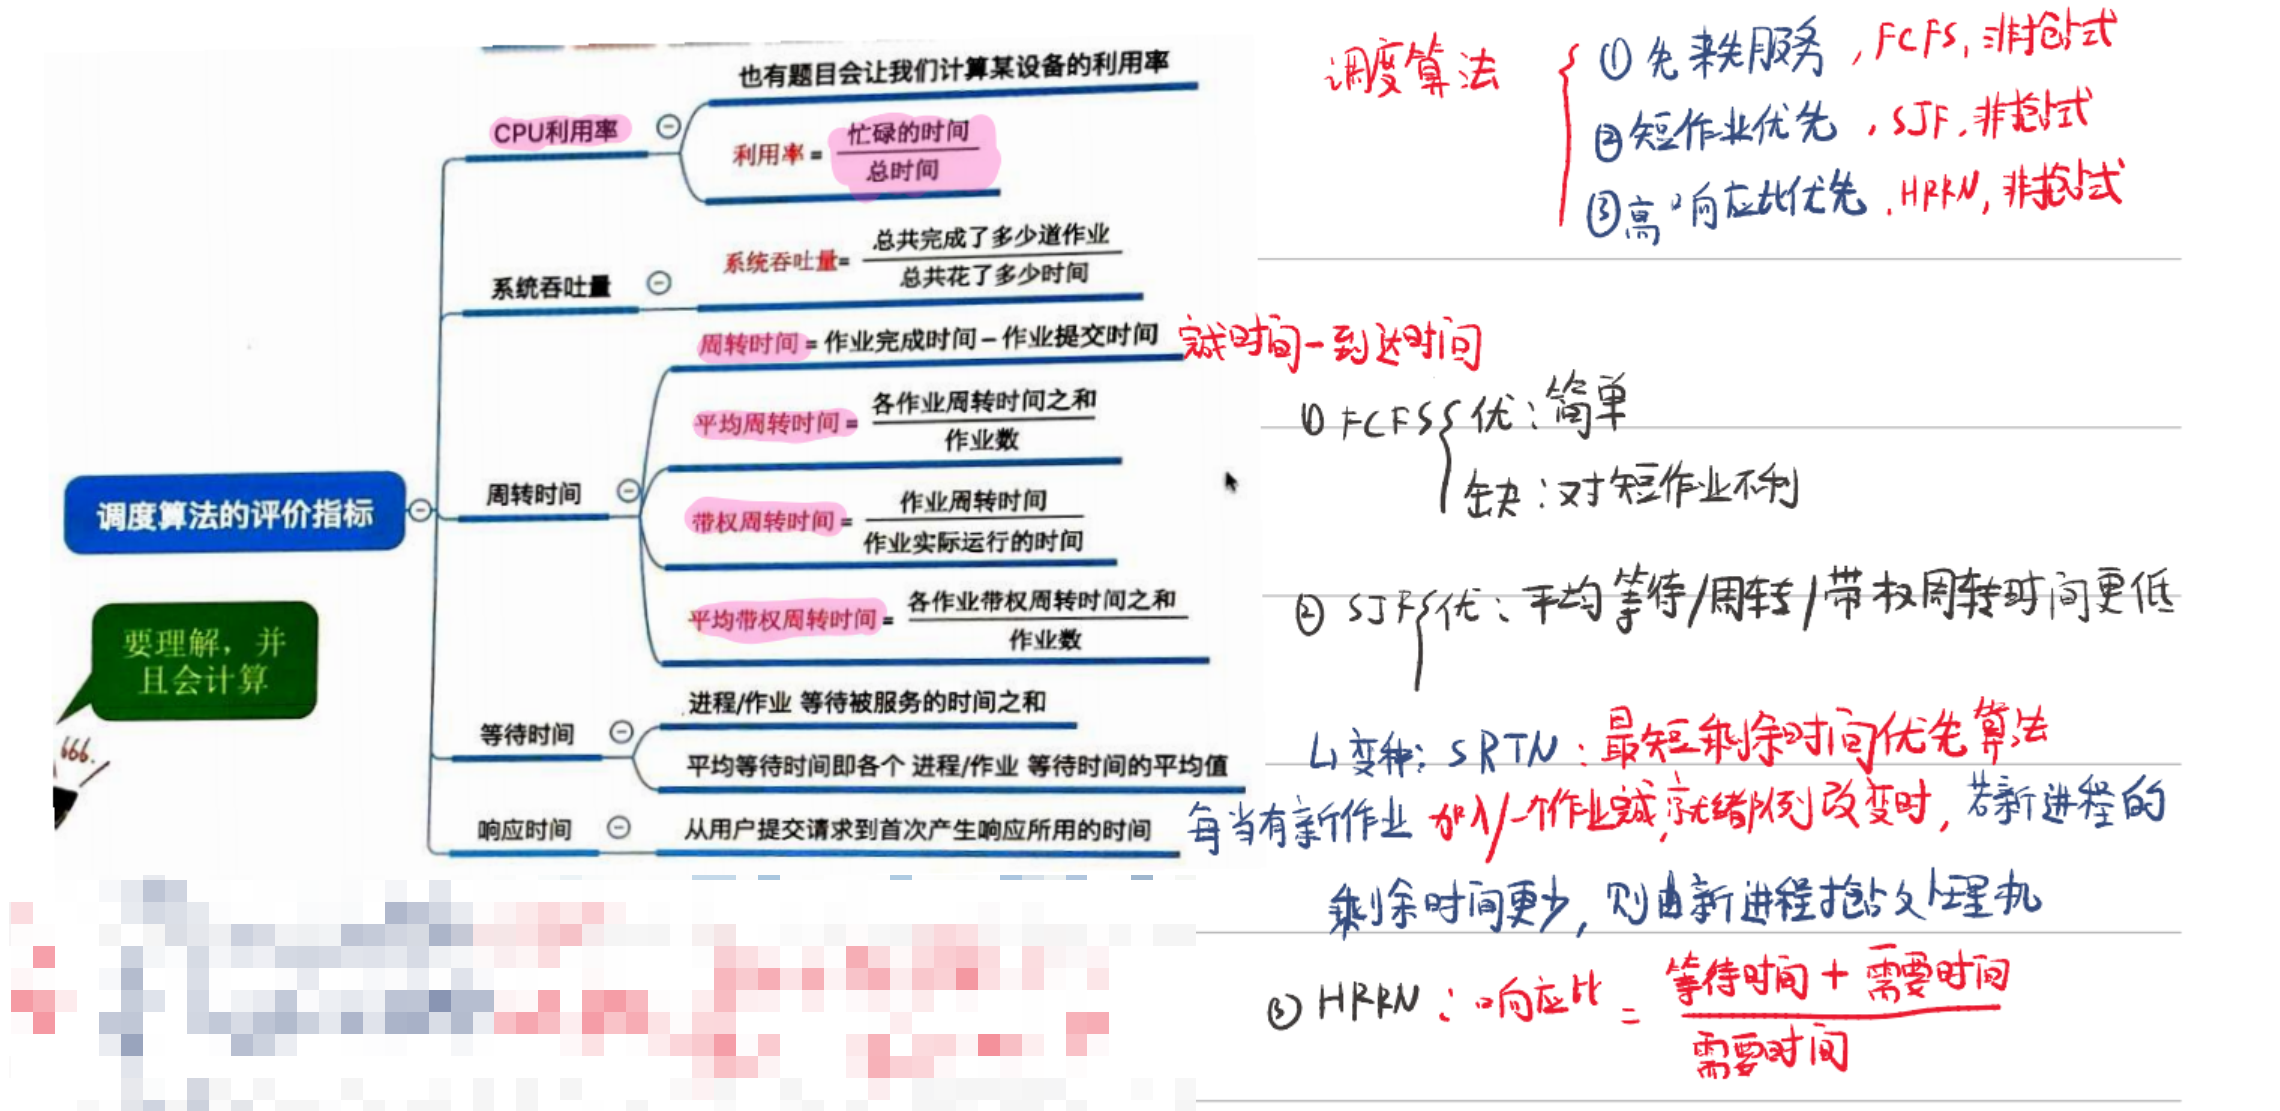 也有题目会让我们计算某设备的利用率
CPU利用率
利用率 = 忙碌的时间
总时间
系统吞吐量
系统吞吐量= 总共完成了多少道作业
总共花了多少时间
周转时间 = 作业完成时间 – 作业提交时间 完成时间 - 到达时间
平均周转时间 = 各作业周转时间之和
作业数
周转时间
带权周转时间 = 作业周转时间
作业实际运行的时间
平均带权周转时间 = 各作业带权周转时间之和
作业数
调度算法的评价指标
要理解，并
且会计算
666.
等待时间
进程/作业 等待被服务的时间之和
平均等待时间即各个 进程/作业 等待时间的平均值
响应时间
从用户提交请求到首次产生响应所用的时间
调度算法
① 先来先服务，FCFS, 非抢占式
② 短作业优先，SJF, 非抢占式
③ 高响应比优先, HRRN, 非抢占式
① FCFS 优：简单
缺：对短作业不利
② SJF 优：平均等待/周转/带权周转时间更低
↳变种：SRTN：最短剩余时间优先算法
每当有新作业加入/一个作业完成,就绪队列改变时，若新进程的
剩余时间更少，则由新进程抢占处理机
③ HRRN：响应比 = 等待时间 + 需要时间
需要时间